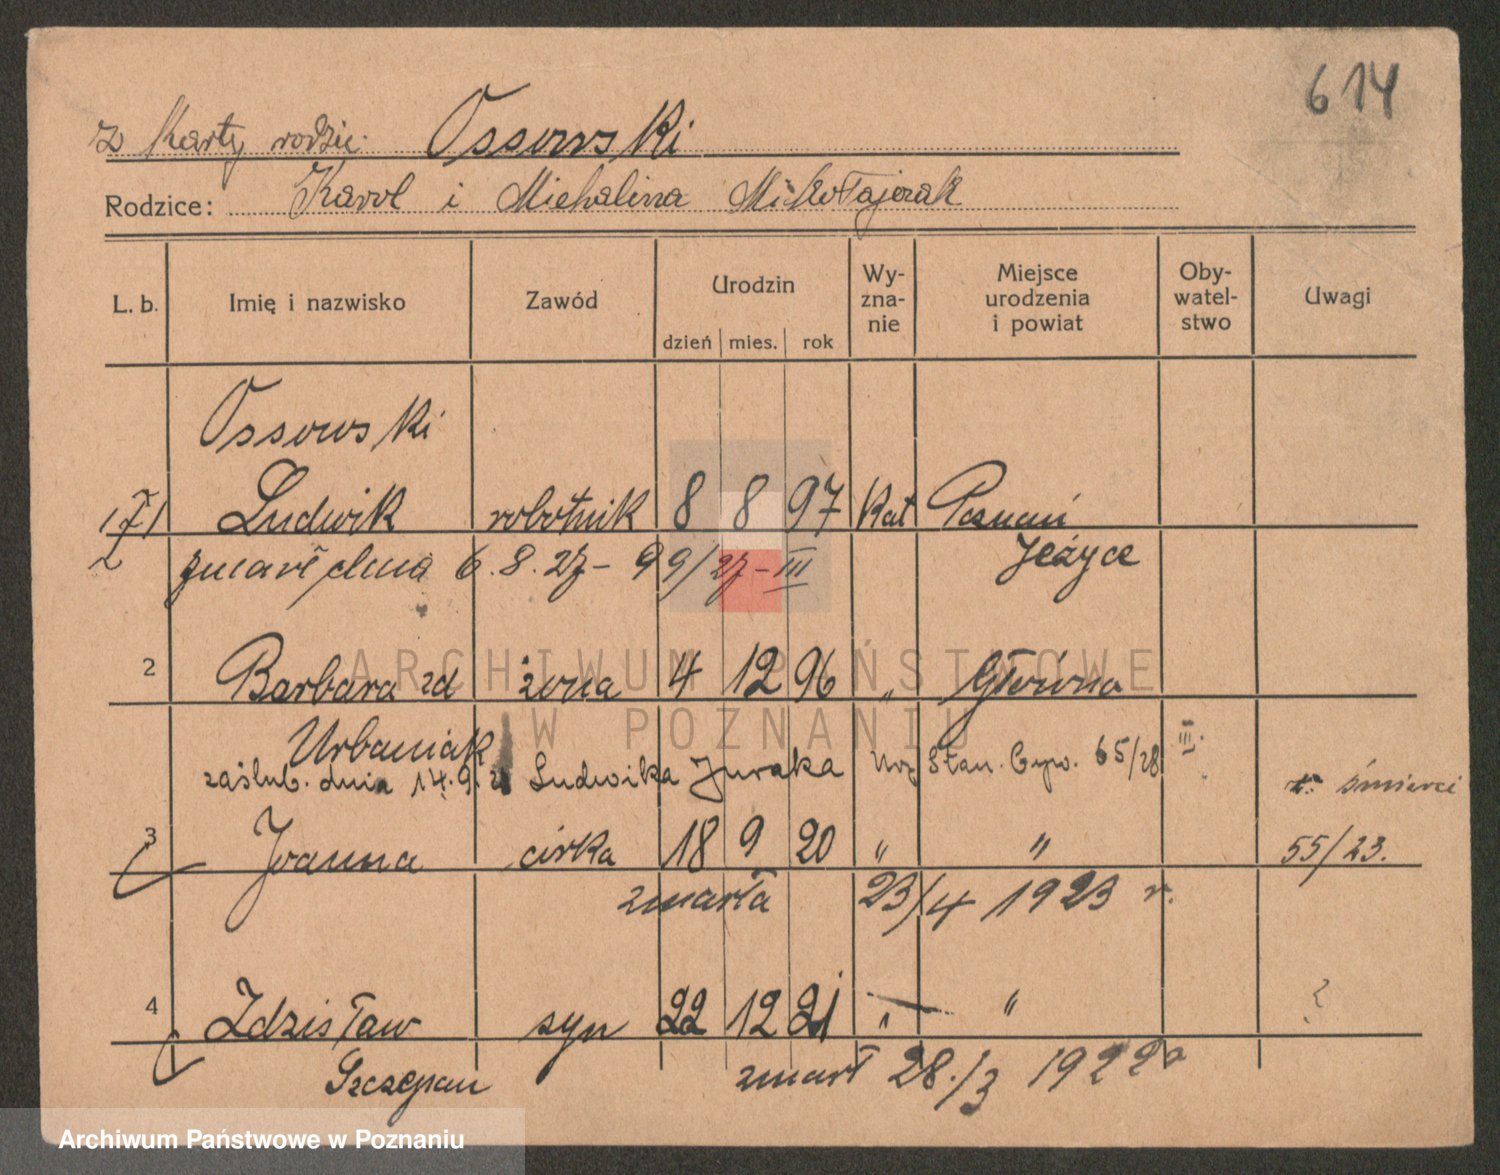 614
z Karty rodzic. Ossowski
Rodzice: Karol i Michalina Mikołajczak
L. b. Imię i nazwisko Zawód Urodzin dzień mies. rok Wy-zna-nie Miejsce urodzenia i powiat Oby-watel-stwo Uwagi
Ossowski
1 Ludwik robotnik 8 8 97 Kat Poznań
Jeżyce
zmarł dnia 6.8.27 - 99/27 - III
2 Barbara zd żona 4 12 96 " Główna
Urbaniak
zaślub. dnia 14.9. Ludwika Juraka Urz Stan. Cyw. 65/28 III.
śmierci
3 Joanna córka 18 9 20 " " 55/23.
zmarła 23/4 1923 r.
4 Zdzisław syn 22 12 21 " " ?
Szczepan zmarł 28./3 1922
ARCHIWUM PAŃSTWOWE
W POZNANIU
Archiwum Państwowe w Poznaniu